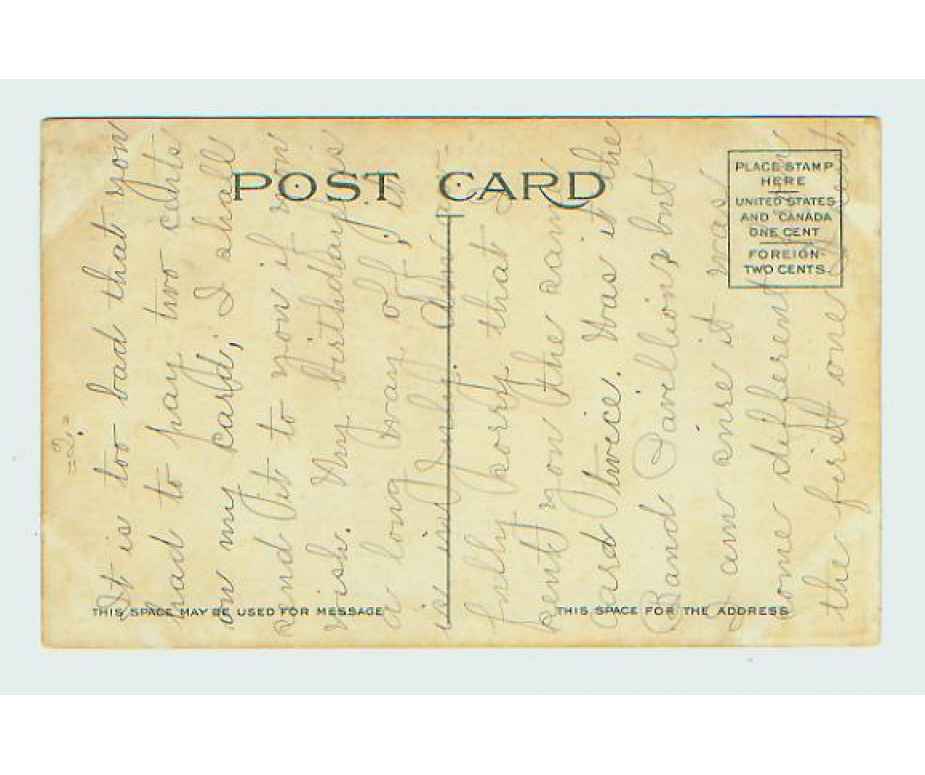 POST CARD
PLACE STAMP
HERE
UNITED STATES
AND CANADA
ONE CENT
FOREIGN
TWO CENTS.
THIS SPACE MAY BE USED FOR MESSAGE
THIS SPACE FOR THE ADDRESS
It is too bad that you
had to pay two cents
on my card, I shall
send it to you if you
wish. My birthday is
a long way off, it
is in July.
fully sorry that I
sent you the same
card twice. Was it the
Band Pavillion, but
I am sure it was
some different
the first one